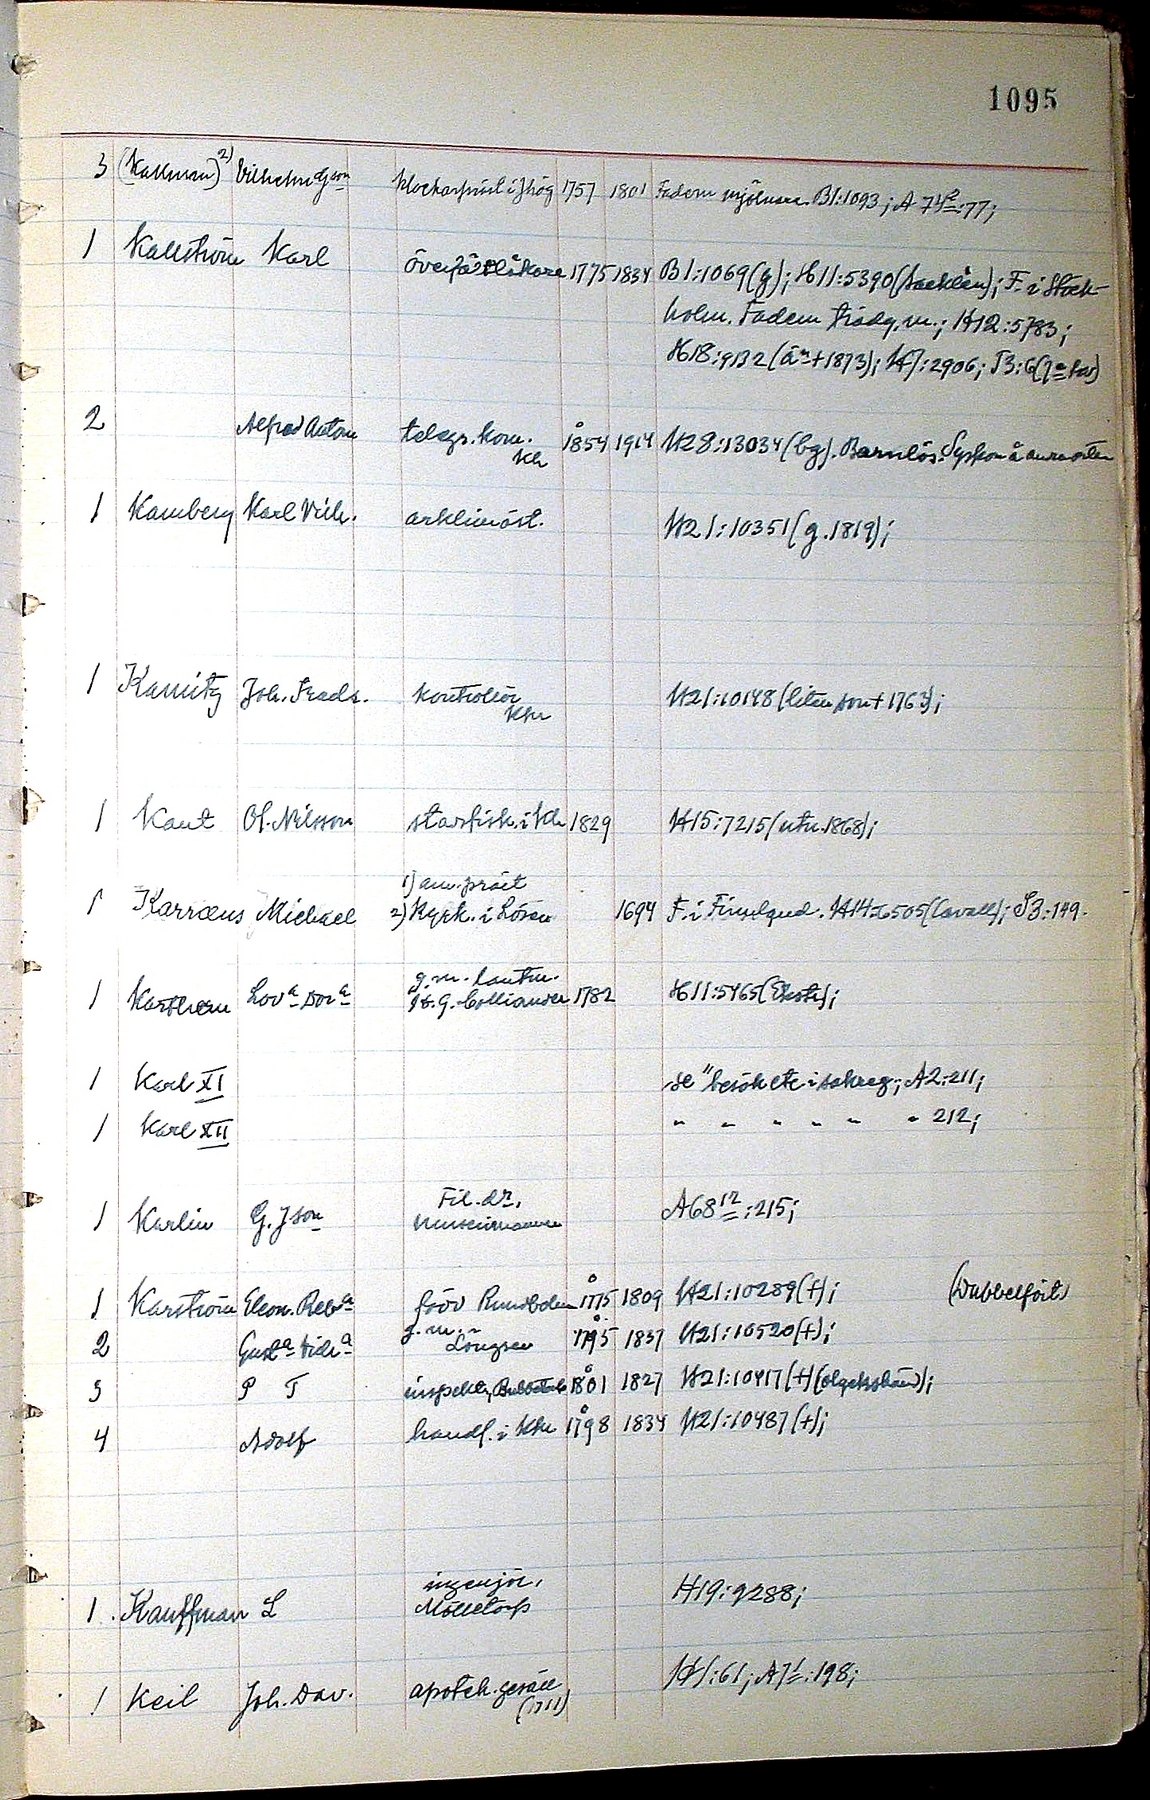 1095
3 (Kallman) 2) Vilhelm Gson 1757 1801 Fadern mjölnare. B1:1093; A 71:77;
1 Kallström Karl överfältläkare 1775 1834 B1:1069(g); H11:5390 (Sacklén); F. i Stock-
holm. Fadern trädg.m.; H12:5783;
H18:9132 (än + 1873); H7:2906; S3:6
2 Alfred Anton telegr.kom. Khr 1854 1914 H28:13034 (bg). Barnlös. Syskon å annan ort
1 Kamberg Karl Vilh. H21:10351 (g. 1819);
1 Kamitz Joh. Fredr. kontrollör
Khr H21:10148 (liten son + 1763);
1 Kant Ol. Nilsson i Khr 1829 H15:7215 (utn. 1868);
1) am.präst
1 Karræus Michael 2) Kyrk. i Lösen 1694 F. i Finnland. H14:6505 (Cavall); S3:149.
g.m. lantm.
1 Lova Dora G. Colliander 1782 H11:5465
1 Karl XI se "besök etc i sakreg; A2:211;
1 Karl XII " " " " " " 212;
Fil. dr,
1 Karlin G. Json museiman A68 12:215;
1 Karström Eleon. Reba 1775 1809 H21:10289 (+); (Dubbelfört)
2 Gusta Vidra g.m. Löngren 1795 1837 H21:10520 (+);
3 P T inspektor 1801 1827 H21:10417 (+) (olyckshänd);
4 Adolf handl. i Khr 1798 1834 H21:10487 (+);
ingenjör,
1. Kauffman L Mölletorp H19:9288;
1 Keil Joh. Dav. apotek.gesäll
(1711) H1:61; A71:198;